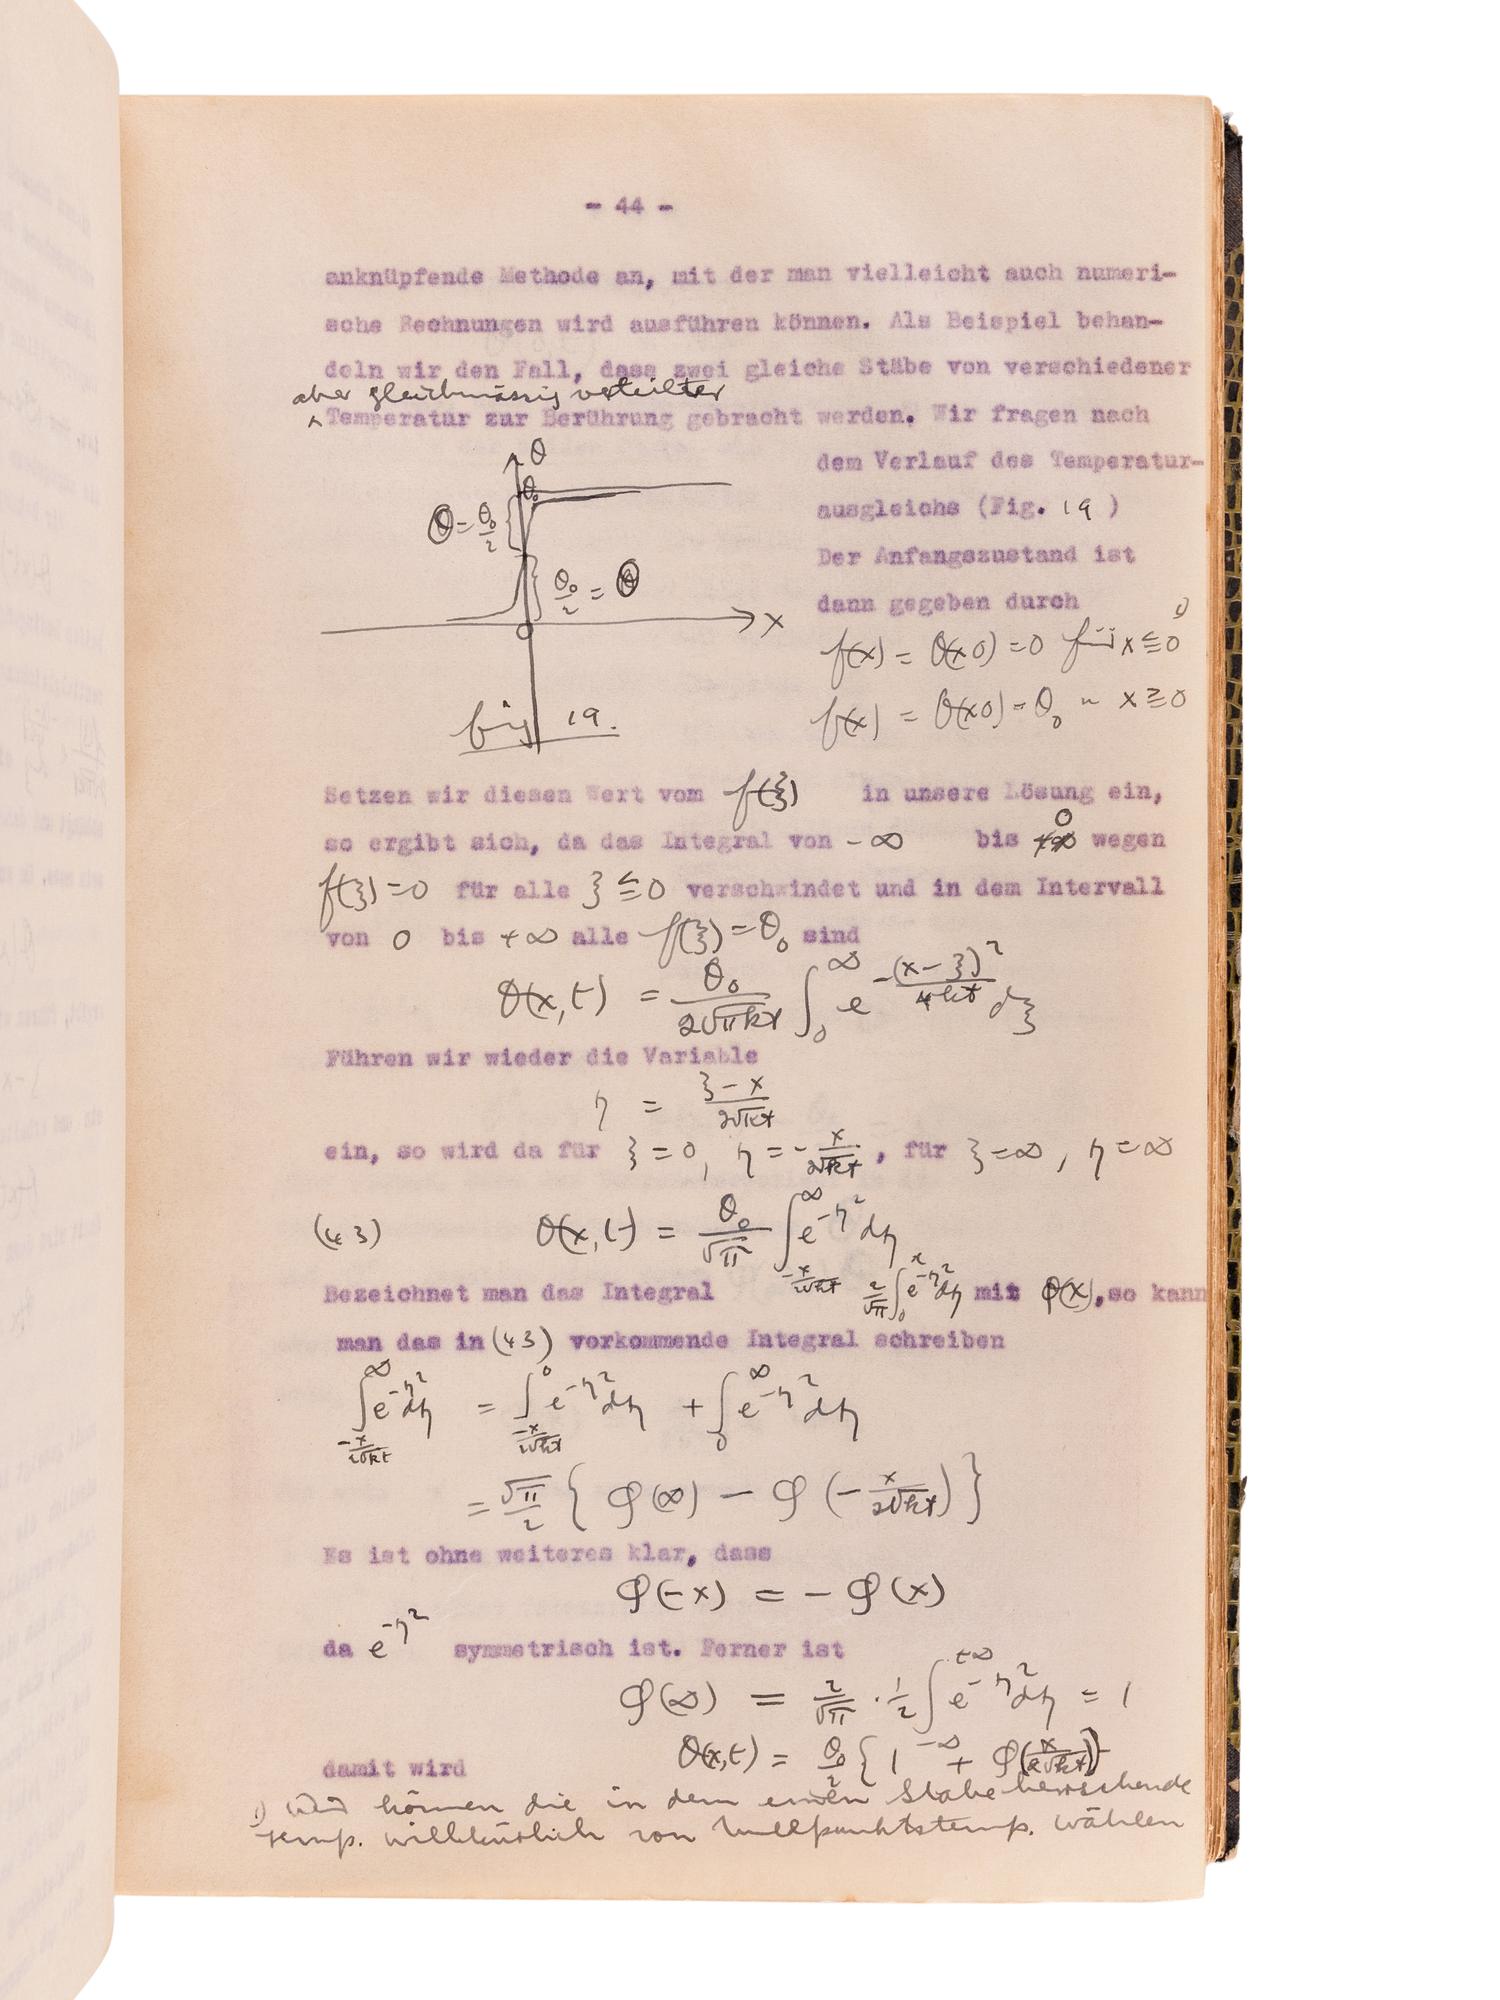 - 44 -
anknüpfende Methode an, mit der man vielleicht auch numeri-
sche Rechnungen wird ausführen können. Als Beispiel behan-
deln wir den Fall, dass zwei gleiche Stäbe von verschiedener
aber gleichmässig verteilter
Temperatur zur Berührung gebracht werden. Wir fragen nach
dem Verlauf des Temperatur-
ausgleichs (Fig. 19 )
Der Anfangszustand ist
dann gegeben durch
f(x) = θ(x0) = 0 für x ≦ 0 ¹)
f(x) = θ(x0) = θ₀ " x ≧ 0
θ
θ₀
θ = θ₀/2
θ₀/2 = θ
x
0
Fig 19.
Setzen wir diesen Wert vom f(ξ) in unsere Lösung ein,
so ergibt sich, da das Integral von -∞ bis 0 wegen
f(ξ) = 0 für alle ξ ≦ 0 verschwindet und in dem Intervall
von 0 bis +∞ alle f(ξ) = θ₀ sind
θ(x,t) = θ₀/(2√πkt) ∫₀^∞ e^(-(x-ξ)²/4kt) dξ
Führen wir wieder die Variable
η = (ξ-x)/(2√kt)
ein, so wird da für ξ = 0, η = -x/(2√kt), für ξ = ∞, η = ∞
(43) θ(x,t) = θ₀/√π ∫_(-x/(2√kt))^∞ e^(-η²) dη
Bezeichnet man das Integral 2/√π ∫₀^x e^(-η²) dη mit φ(x), so kann
man das in (43) vorkommende Integral schreiben
∫_(-x/(2√kt))^∞ e^(-η²) dη = ∫_(-x/(2√kt))^0 e^(-η²) dη + ∫₀^∞ e^(-η²) dη
= √π/2 { φ(∞) - φ(-x/(2√kt)) }
Es ist ohne weiteres klar, dass
φ(-x) = -φ(x)
da e^(-η²) symmetrisch ist. Ferner ist
φ(∞) = 2/√π · 1/2 ∫_(-∞)^(+∞) e^(-η²) dη = 1
damit wird θ(x,t) = θ₀/2 { 1 + φ(x/(2√kt)) }
¹) Wir können die in dem einen Stabe herrschende
Temp. willkürlich von Nullpunktstemp. wählen